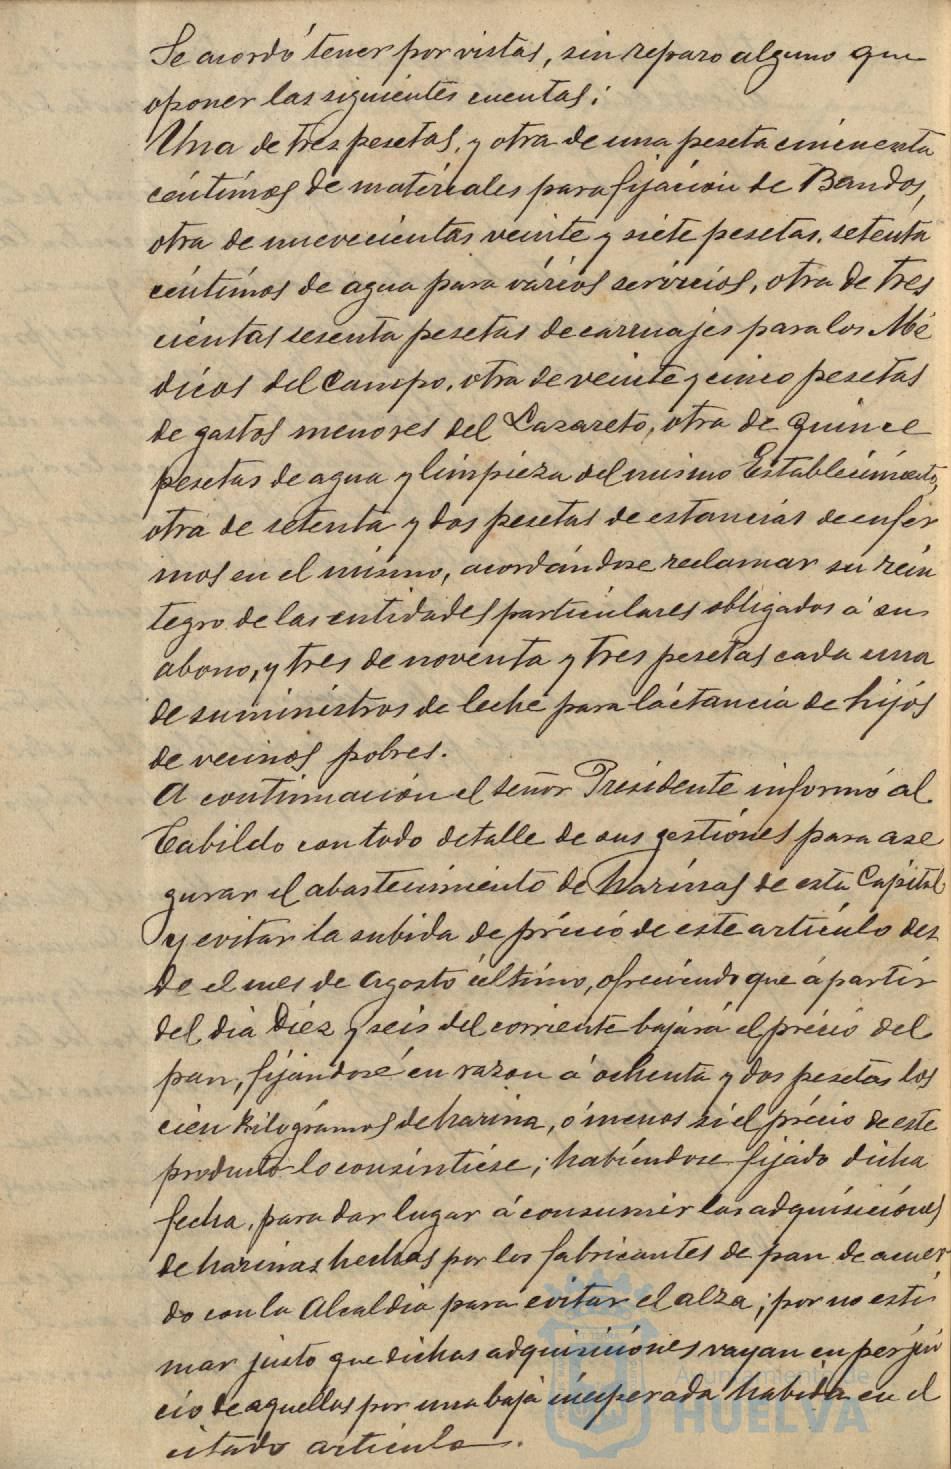 Se acordó tener por vistas, sin reparo alguno que
oponer las siguientes cuentas:
Una de tres pesetas, y otra de una peseta cincuenta
céntimos de materiales para fijación de Bandos,
otra de nuevecientas veinte y siete pesetas, setenta
céntimos de agua para vários servicios, otra de tres
cientas sesenta pesetas de carruajes para los Mé
dicos del Campo, otra de veinte y cinco pesetas
de gastos menores del Lazareto, otra de quince
pesetas de agua y limpieza del mismo Establecimiento,
otra de setenta y dos pesetas de estancias de enfer
mos en el mismo, acordándose reclamar su rein
tegro de las entidades particulares obligados á su
abono, y tres de noventa y tres pesetas cada una
de suministros de leche para lactancia de hijos
de vecinos pobres.
A continuación el señor Presidente informó al
Cabildo con todo detalle de sus gestiones para ase
gurar el abastecimiento de harinas de esta Capital
y evitar la subida de précio de este artículo des
de el mes de Agosto último, ofreciendo que á partir
del dia Diéz y seis del corriente bajará el précio del
pan, fijándose en razon á ochenta y dos pesetas los
cien kilográmos de harina, ó menos si el précio de este
producto lo consintiése; habiéndose fijado dicha
fecha, para dar lugar á consumir las adquisiciónes
de harinas hechas por los fabricantes de pan de acuer
do con la Alcaldia para evitar el alza; por no esti
mar justo que dichas adquisiciónes vayan en perjui
cio de aquellos por una baja inesperada habida en el
citado artículo.
Ayuntamiento de
HUELVA